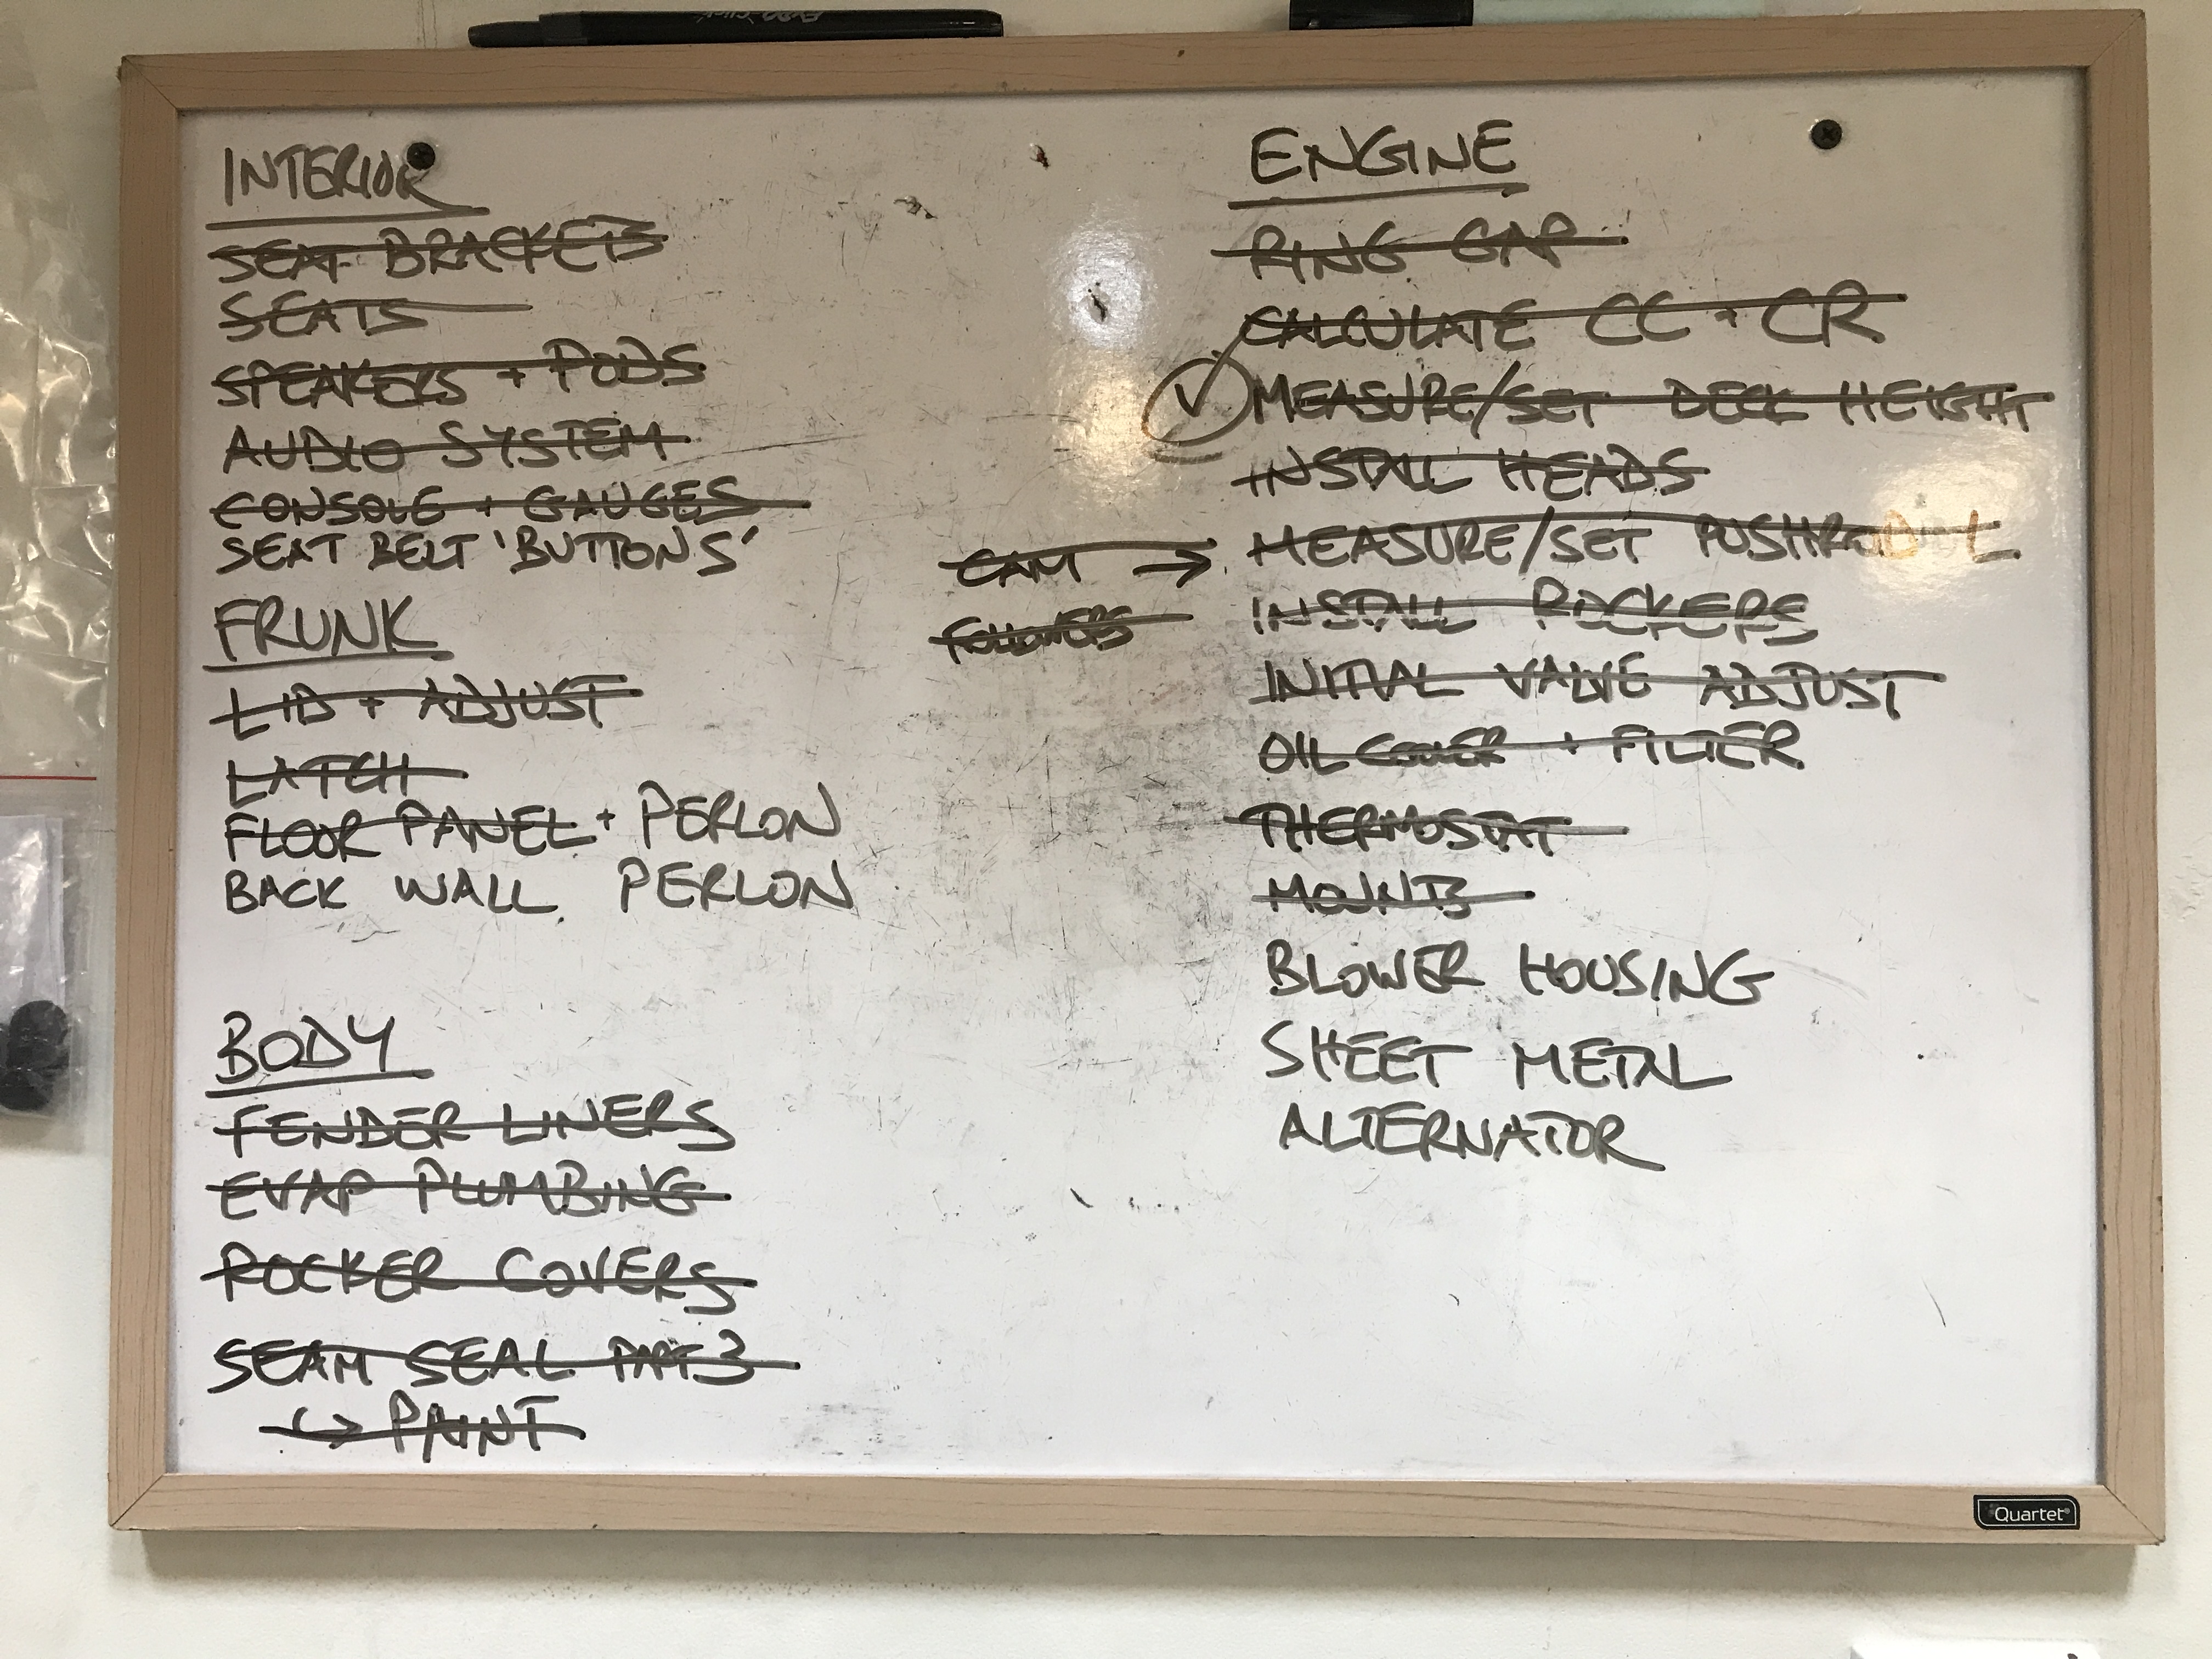 INTERIOR
SEAT BRACKETS
SEATS
SPEAKERS + PODS
AUDIO SYSTEM
CONSOLE + GAUGES
SEAT BELT 'BUTTONS'
FRUNK
LID + ADJUST
LATCH
FLOOR PANEL + PERLON
BACK WALL PERLON
BODY
FENDER LINERS
EVAP PLUMBING
ROCKER COVERS
SEAM SEAL PART 3
↳ PAINT
ENGINE
RING GAP
CALCULATE CC + CR
✓ MEASURE/SET DECK HEIGHT
INSTALL HEADS
CAM → MEASURE/SET PUSHROD L
FOLLOWERS
INSTALL ROCKERS
INITIAL VALVE ADJUST
OIL COOLER + FILTER
THERMOSTAT
MOUNTS
BLOWER HOUSING
SHEET METAL
ALTERNATOR
Quartet